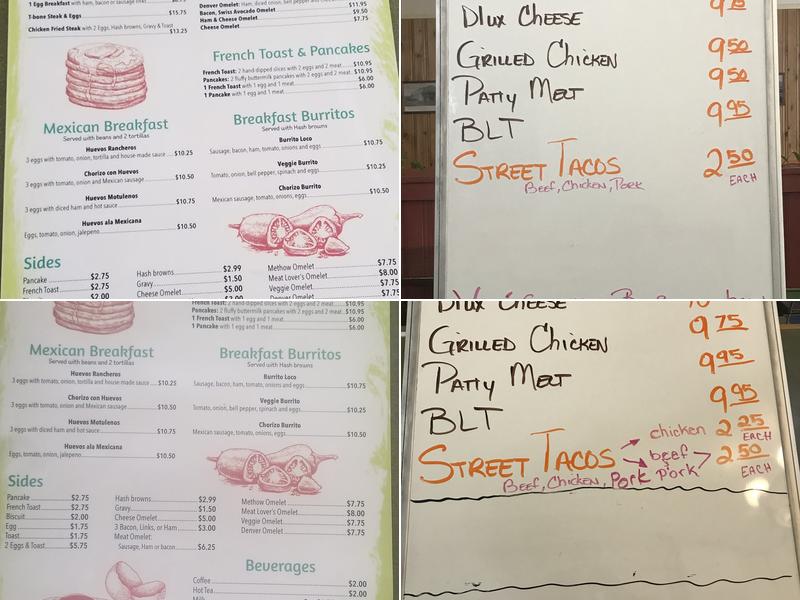 1 Egg Breakfast with ham, bacon or sausage
T-bone Steak & Eggs
$15.75
Chicken Fried Steak with 2 Eggs, Hash browns, Gravy & Toast
$13.25
Denver Omelet: Ham, diced onion, bell pepper
$11.95
Bacon, Swiss Avocado Omelet
$9.50
Ham & Cheese Omelet
$7.75
Cheese Omelet
French Toast & Pancakes
French Toast: 2 hand-dipped slices with 2 eggs and 2 meat $10.95
Pancakes: 2 fluffy buttermilk pancakes with 2 eggs and 2 meat $10.95
1 French Toast with 1 egg and 1 meat $6.00
1 Pancake with 1 egg and 1 meat $6.00
Mexican Breakfast
Served with beans and 2 tortillas
Huevos Rancheros
3 eggs with tomato, onion, tortilla and house made sauce $10.25
Chorizo con Huevos
3 eggs with tomato, onion and Mexican sausage $10.50
Huevos Motulenos
3 eggs with diced ham and hot sauce $10.75
Huevos ala Mexicana
Eggs, tomato, onion, jalepeno $10.50
Breakfast Burritos
Served with Hash browns
Burrito Loco
Sausage, bacon, ham, tomato, onions and eggs $10.75
Veggie Burrito
Tomato, onion, bell pepper, spinach and eggs $10.25
Chorizo Burrito
Mexican sausage, tomato, onions, eggs $10.50
Sides
Pancake $2.75
French Toast $2.75
$2.00
Hash browns $2.99
Gravy $1.50
Cheese Omelet $5.00
Methow Omelet $7.75
Meat Lover's Omelet $8.00
Veggie Omelet $7.75
Denver Omelet $7.75
Dlux Cheese
Grilled Chicken 9.50
Patty Melt 9.50
BLT 9.95
Street Tacos 2.50 EACH
Beef, Chicken, Pork
French Toast: 2 hand-dipped slices with 2 eggs and 2 meat $10.95
Pancakes: 2 fluffy buttermilk pancakes with 2 eggs and 2 meat $10.95
1 French Toast with 1 egg and 1 meat $6.00
1 Pancake with 1 egg and 1 meat $6.00
Mexican Breakfast
Served with beans and 2 tortillas
Huevos Rancheros
3 eggs with tomato, onion, tortilla and house made sauce $10.25
Chorizo con Huevos
3 eggs with tomato, onion and Mexican sausage $10.50
Huevos Motulenos
3 eggs with diced ham and hot sauce $10.75
Huevos ala Mexicana
Eggs, tomato, onion, jalepeno $10.50
Breakfast Burritos
Served with Hash browns
Burrito Loco
Sausage, bacon, ham, tomato, onions and eggs $10.75
Veggie Burrito
Tomato, onion, bell pepper, spinach and eggs $10.25
Chorizo Burrito
Mexican sausage, tomato, onions, eggs $10.50
Sides
Pancake $2.75
French Toast $2.75
Biscuit $2.00
Egg $1.75
Toast $1.75
2 Eggs & Toast $5.75
Hash browns $2.99
Gravy $1.50
Cheese Omelet $5.00
3 Bacon, Links, or Ham $3.00
Meat Omelet:
Sausage, Ham or bacon $6.25
Methow Omelet $7.75
Meat Lover's Omelet $8.00
Veggie Omelet $7.75
Denver Omelet $7.75
Beverages
Coffee $2.00
Hot Tea $2.00
Dlux Cheese
Grilled Chicken 9.75
Patty Melt 9.95
BLT 9.95
chicken 2.25 EACH
Street Tacos beef & pork 2.50 EACH
Beef, Chicken, Pork